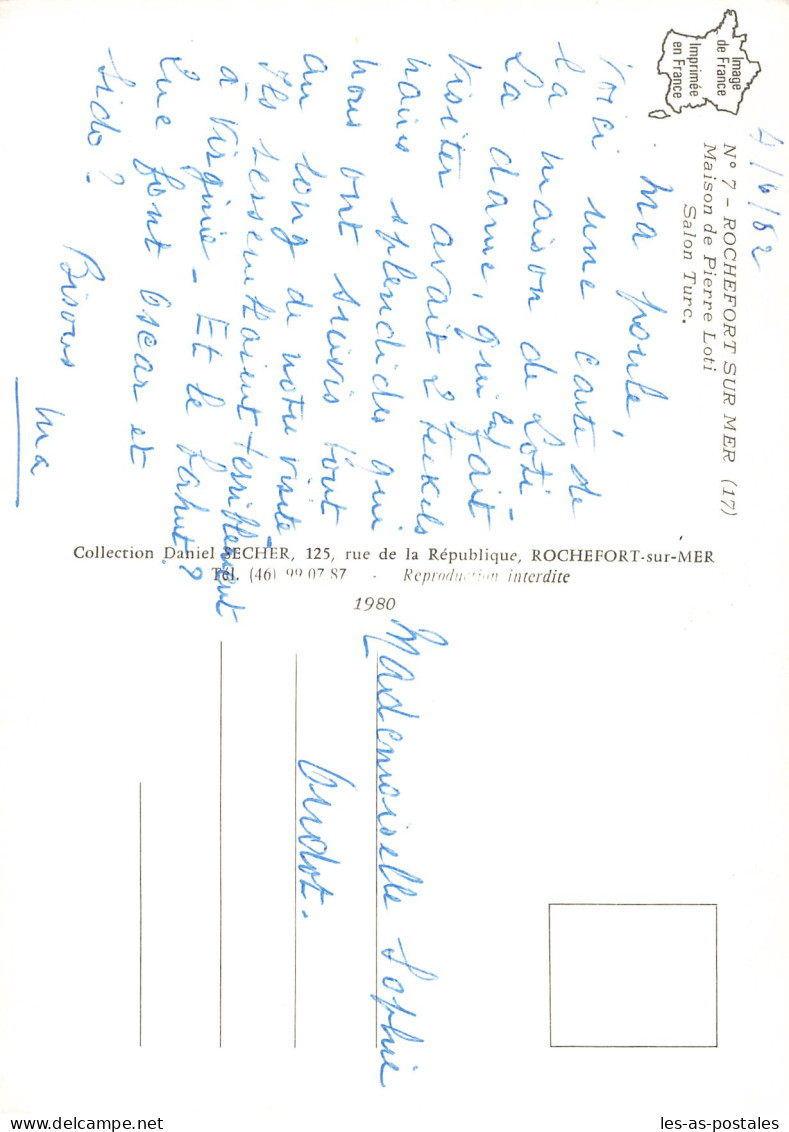 Image
de France
Imprimée
en France
N° 7 - ROCHEFORT SUR MER (17)
Maison de Pierre Loti
Salon Turc.
4/6/82
Ma poule,
Voici une carte de
la maison de Loti
La dame, qui fait
visiter avait 2 teckels
nains splendides qui
nous ont suivis tout
au long de notre visite
Ils ressemblaient terriblement
à Virginie - Et le bahut ?
Que font Oscar et
Sido ?
Bisous
Ma
Collection Daniel SECHER, 125, rue de la République, ROCHEFORT-sur-MER
Tél. (46) 99.07.87 - Reproduction interdite
1980
Mademoiselle Sophie
les-as-postales - Delcampe